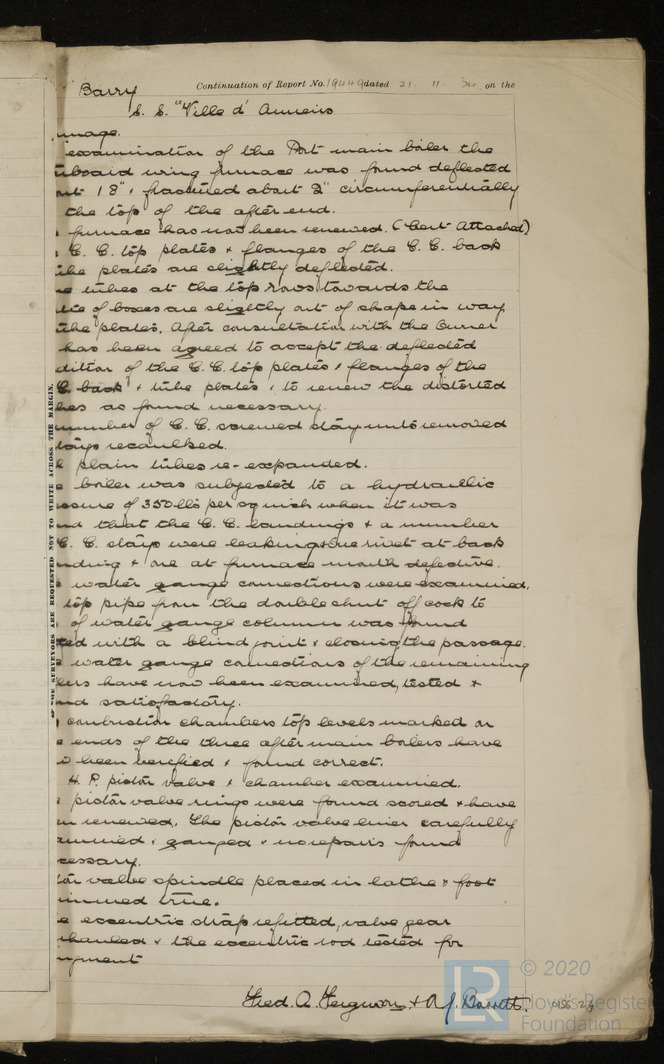 Barry Continuation of Report No. 19449 dated 21. 11. on the
S. S. "Ville d' Anvers
mage.
examination of the Port main boiler the
board wing furnace was found deflected
1 8" & fractured about 2" circumferentially
the top of the after end.
furnace has now been renewed. (Cert Attached)
C. C. top plates & flanges of the C. C. back
the plates are slightly deflected.
tubes at the top rows towards the
of boxes are slightly out of shape in way
the plates. After consultation with the Owner
has been agreed to accept the deflected
dition of the C. C. top plates & flanges of the
C. back & tube plates & to renew the distorted
bes as found necessary.
number of C. C. screwed stay nuts removed
stays recaulked.
plain tubes re-expanded.
boiler was subjected to a hydraulic
ssure of 350 lbs per sq inch when it was
nd that the C. C. landings & a number
C. C. stays were leaking & one rivet at back
nding & one at furnace mouth defective.
water gauge connections were examined,
top pipe from the double shut off cock to
of water gauge column was found
ted with a blind joint & closing the passage.
water gauge connections of the remaining
lers have now been examined, tested &
nd satisfactory.
combustion chambers top levels marked on
ends of the three after main boilers have
been verified & found correct.
H. P. piston valve & chamber examined.
piston valve rings were found scored & have
en renewed. The piston valve liner carefully
amined & gauged & no repairs found
cessary.
valve spindle placed in lathe & foot
true.
eccentric strap refitted, valve gear
& the eccentric rod tested for
ngment
Fred. A. Ferguson & A. J. Barrett.
SURVEYORS ARE REQUESTED NOT TO WRITE ACROSS THE MARGIN.
LR
© 2020
Lloyd's Register
Foundation